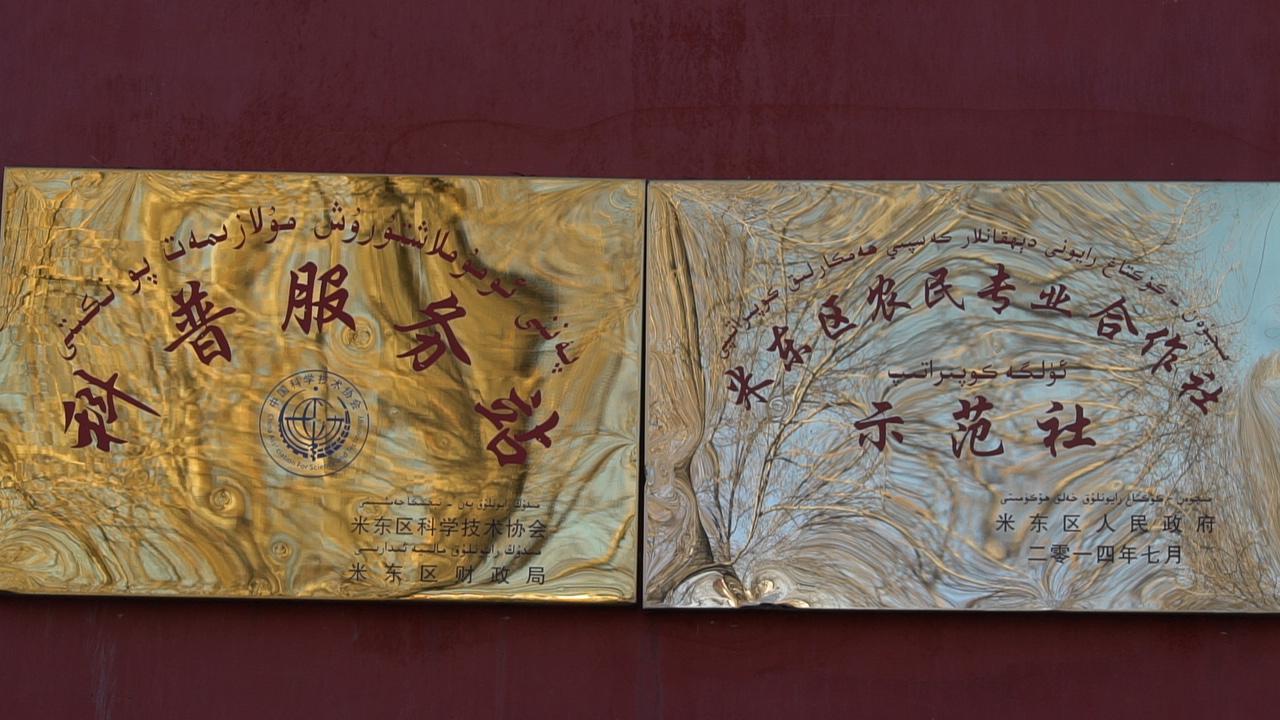 پەننى ئومۇملاشتۇرۇش مۇلازىمەت پونكىتى
科普服务站
中国科学技术协会
米东区科学技术协会
米东区财政局
رايونى دېھقانلار كەسىپىي ھەمكارلىق كوپىراتىپى
米东区农民专业合作社
ئۈلگە كوپىراتىپ
示范社
رايونلۇق خەلق ھۆكۈمىتى
米东区人民政府
二零一四年七月